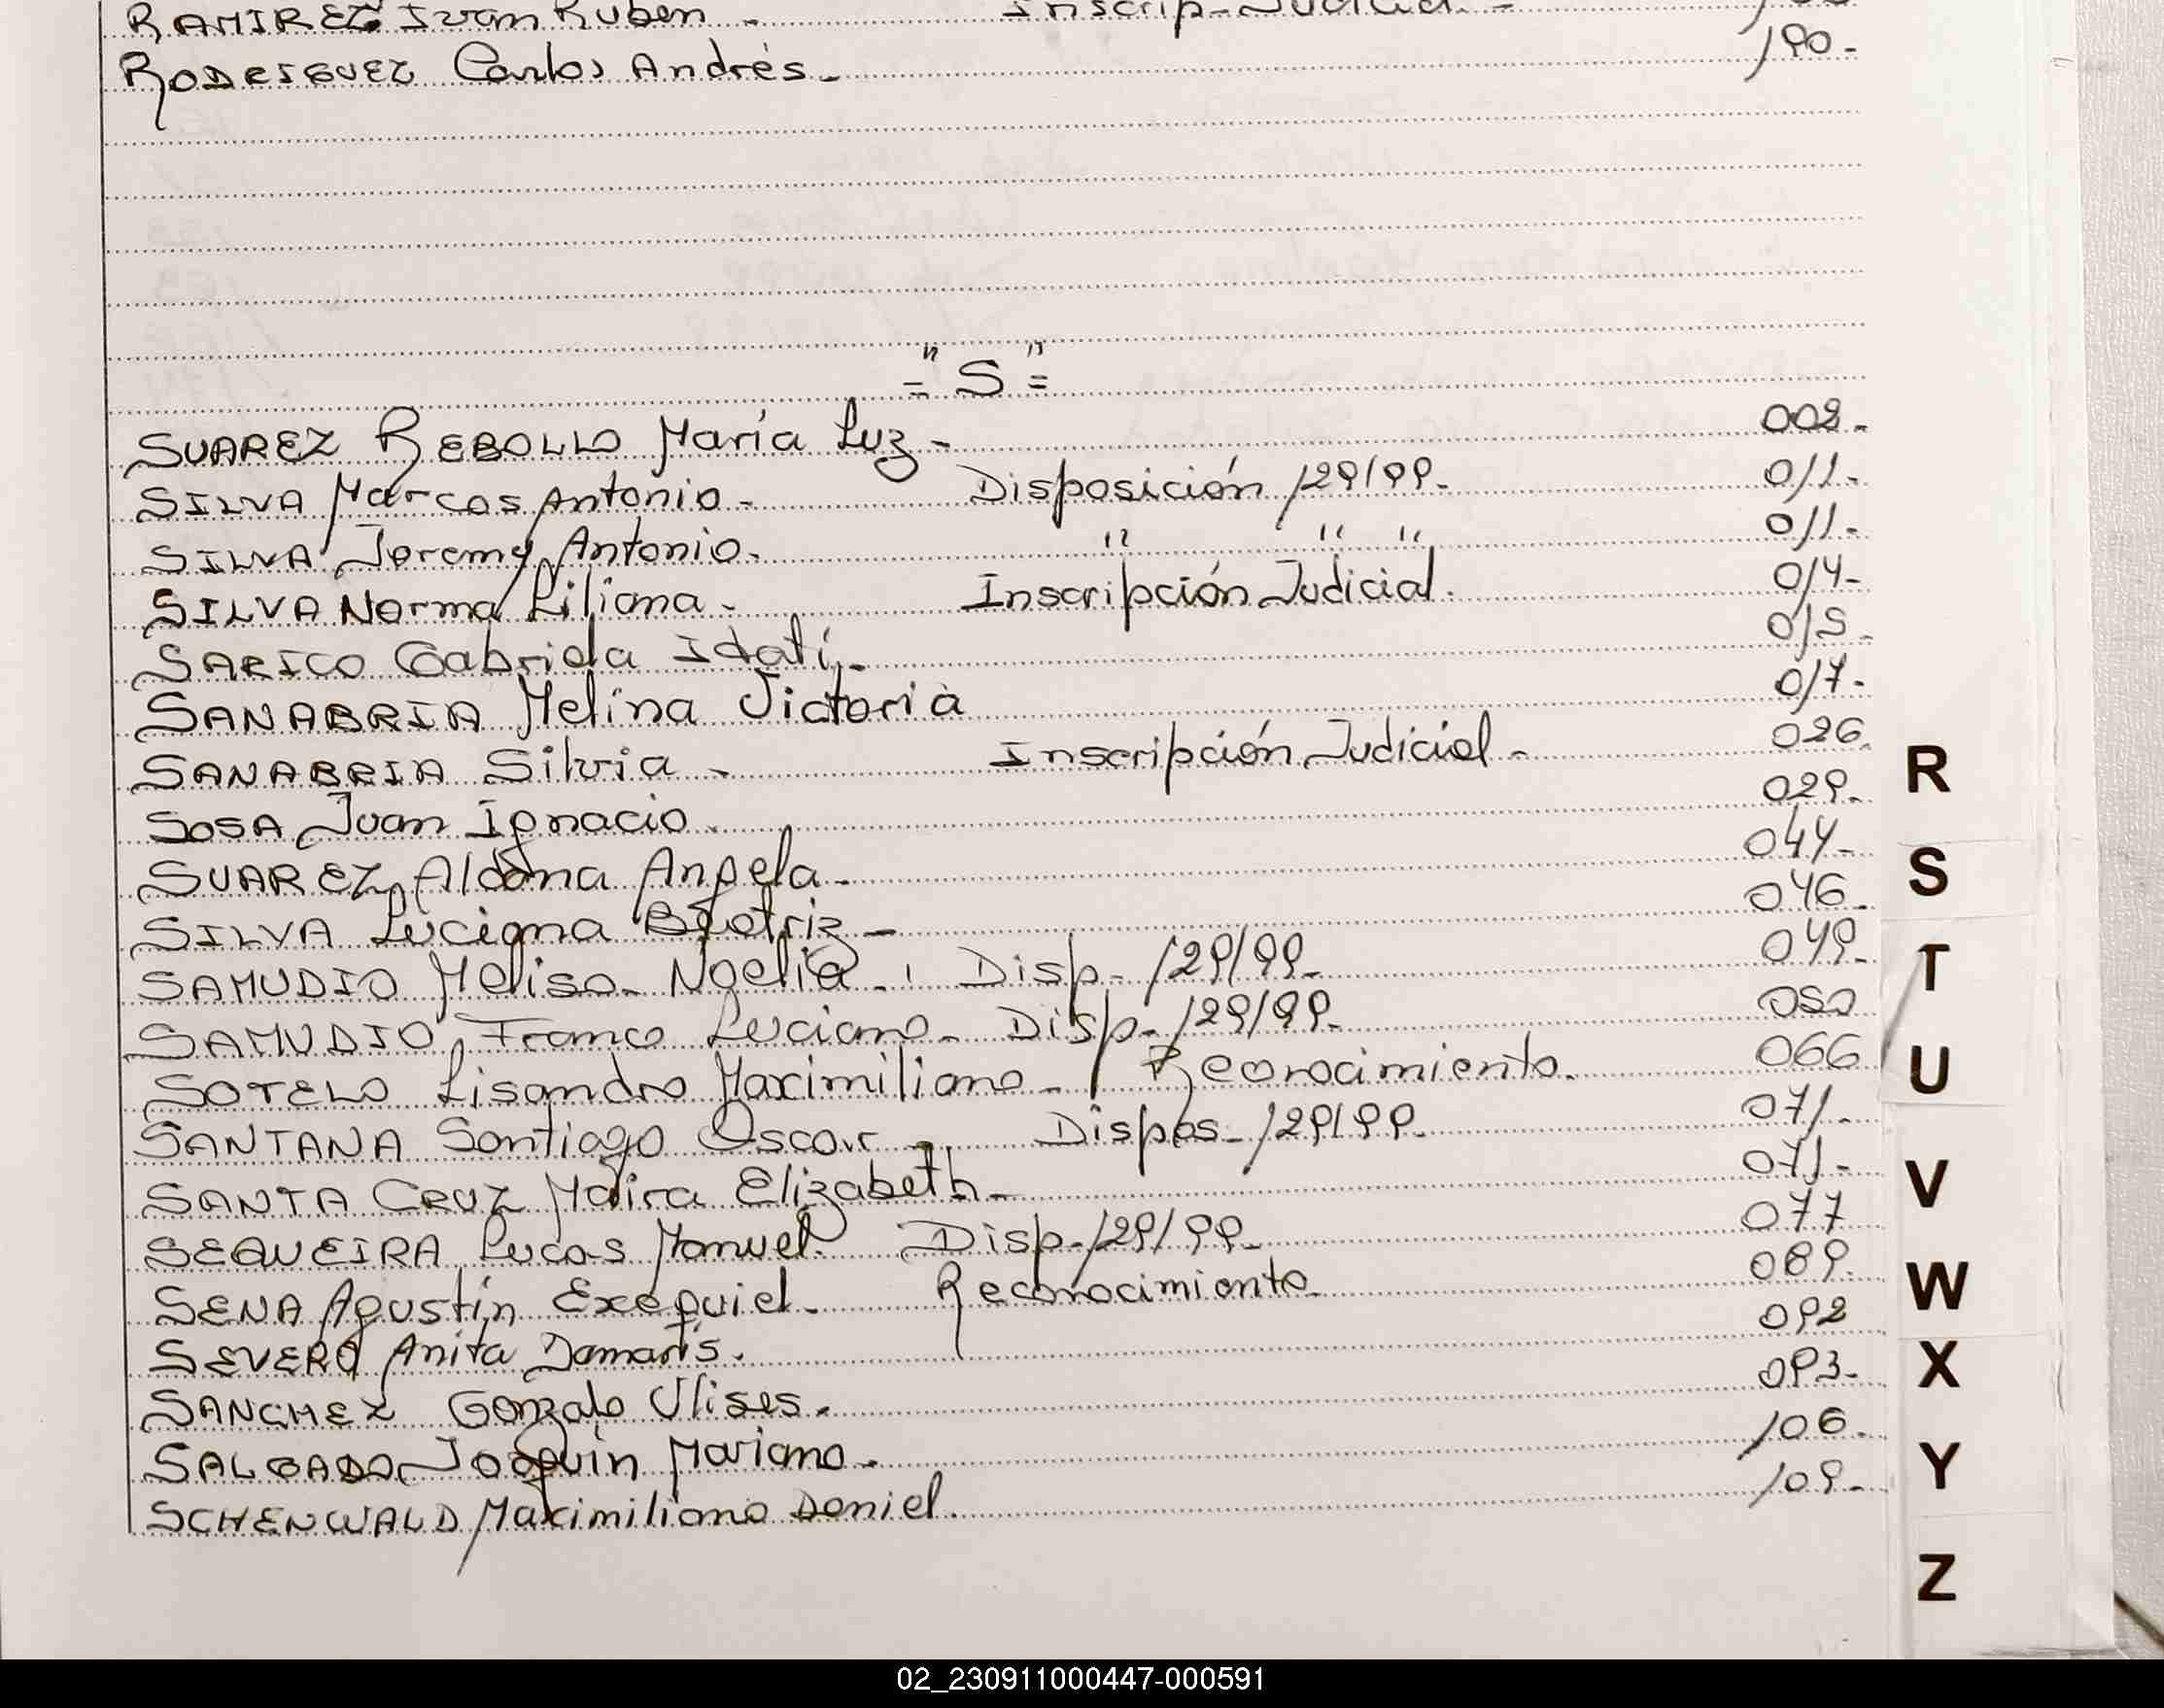 RAMIREZ Ivan Ruben - Inscrip-Judicial. -
RODRIGUEZ Carlos Andrés. 190-
="S"=
SUAREZ REBOLLO María Luz - 002.
SILVA Marcos Antonio. Disposición 129/99. 011.
SILVA Jeremy Antonio. " " " 011.
SILVA Norma Liliana. Inscripción Judicial. 014-
SARICO Gabriela Idatí. 015.
SANABRIA Melina Victoria 017.
SANABRIA Silvia - Inscripción Judicial - 026.
SOSA Juan Ignacio. 029.
SUAREZ Aldana Angela. 044-
SILVA Luciana Beatriz - 046.
SAMUDIO Melisa Noelia. Disp- 129/99. 049.
SAMUDIO Franco Luciano. Disp- 129/99. 050
SOTELO Lisandro Maximiliano - Reconocimiento. 066
SANTANA Santiago Oscar - Dispos- 129/99. 071.
SANTA CRUZ Maira Elizabeth - 071-
SEQUEIRA Lucas Manuel. Disp-129/99. 077
SENA Agustín Exequiel. Reconocimiento. 089.
SEVERO Anita Damaris. 092
SANCHEZ Gonzalo Ulises. 093-
SALGADO Joaquín Mariano. 106.
SCHENWALD Maximiliano Daniel. 109.
R
S
T
U
V
W
X
Y
Z
02_230911000447-000591